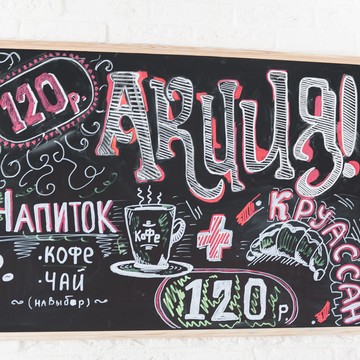 120р
Акция!
Напиток
• Кофе
• Чай
~(на выбор)~
Кофе
+
Круассан
120р